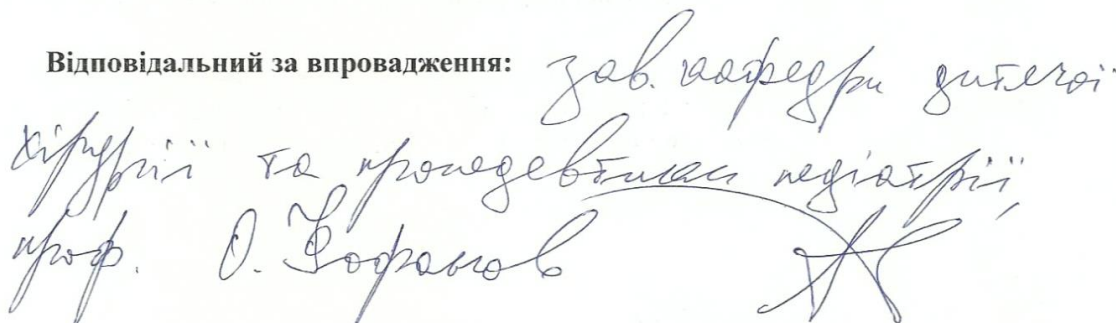 Відповідальний за впровадження: зав. кафедри дитячої
хірургії та пропедевтики педіатрії,
проф. О. Фофанов